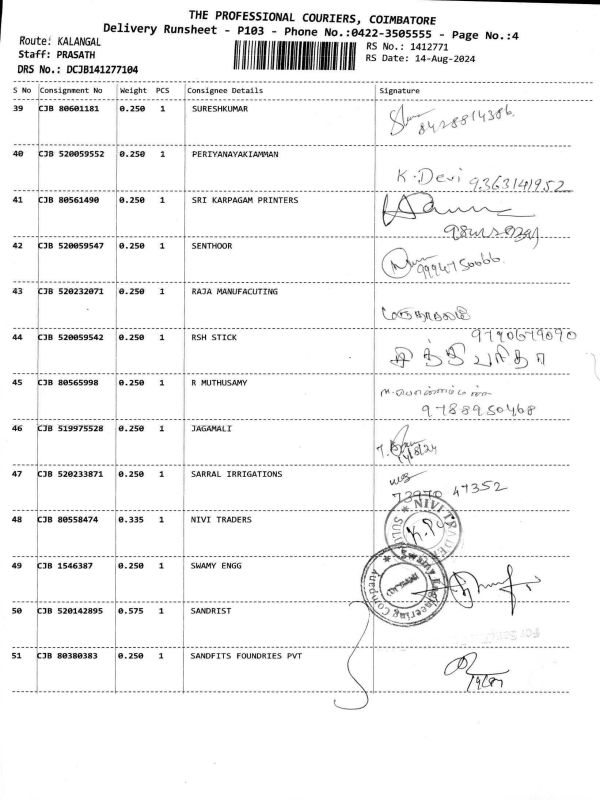 THE PROFESSIONAL COURIERS, COIMBATORE
Delivery Runsheet - P103 - Phone No.:0422-3505555 - Page No.:4
Route: KALANGAL
RS No.: 1412771
Staff: PRASATH
RS Date: 14-Aug-2024
DRS No.: DCJB141277104
S No Consignment No Weight PCS Consignee Details Signature
39 CJB 80601181 0.250 1 SURESHKUMAR
8428814386
40 CJB 520059552 0.250 1 PERIYANAYAKIAMMAN
K. Devi 9363141952
41 CJB 80561490 0.250 1 SRI KARPAGAM PRINTERS
42 CJB 520059547 0.250 1 SENTHOOR
9994750066
43 CJB 520232071 0.250 1 RAJA MANUFACUTING
44 CJB 520059542 0.250 1 RSH STICK
9790679090
45 CJB 80565998 0.250 1 R MUTHUSAMY
9788950468
46 CJB 519975528 0.250 1 JAGAMALI
14/8/24
47 CJB 520233871 0.250 1 SARRAL IRRIGATIONS
73970 47352
48 CJB 80558474 0.335 1 NIVI TRADERS
NIVI TRADER
49 CJB 1546387 0.250 1 SWAMY ENGG
Swamy Engineering Company
50 CJB 520142895 0.575 1 SANDRIST
51 CJB 80380383 0.250 1 SANDFITS FOUNDRIES PVT